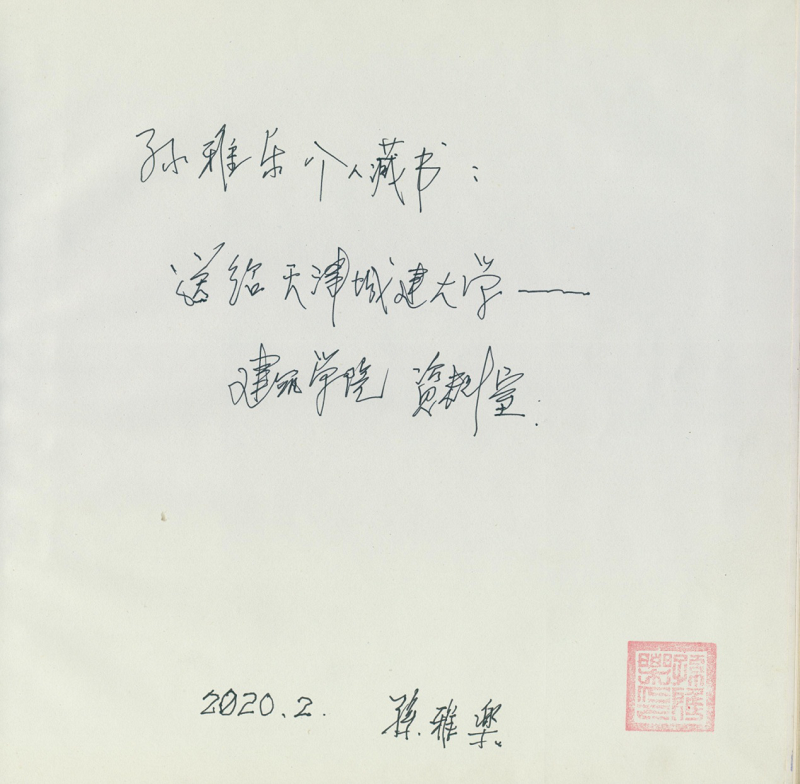 孙雅乐个人藏书：
送给天津城建大学——
建筑学院 资料室.
2020.2. 孫雅樂.
孫雅樂印